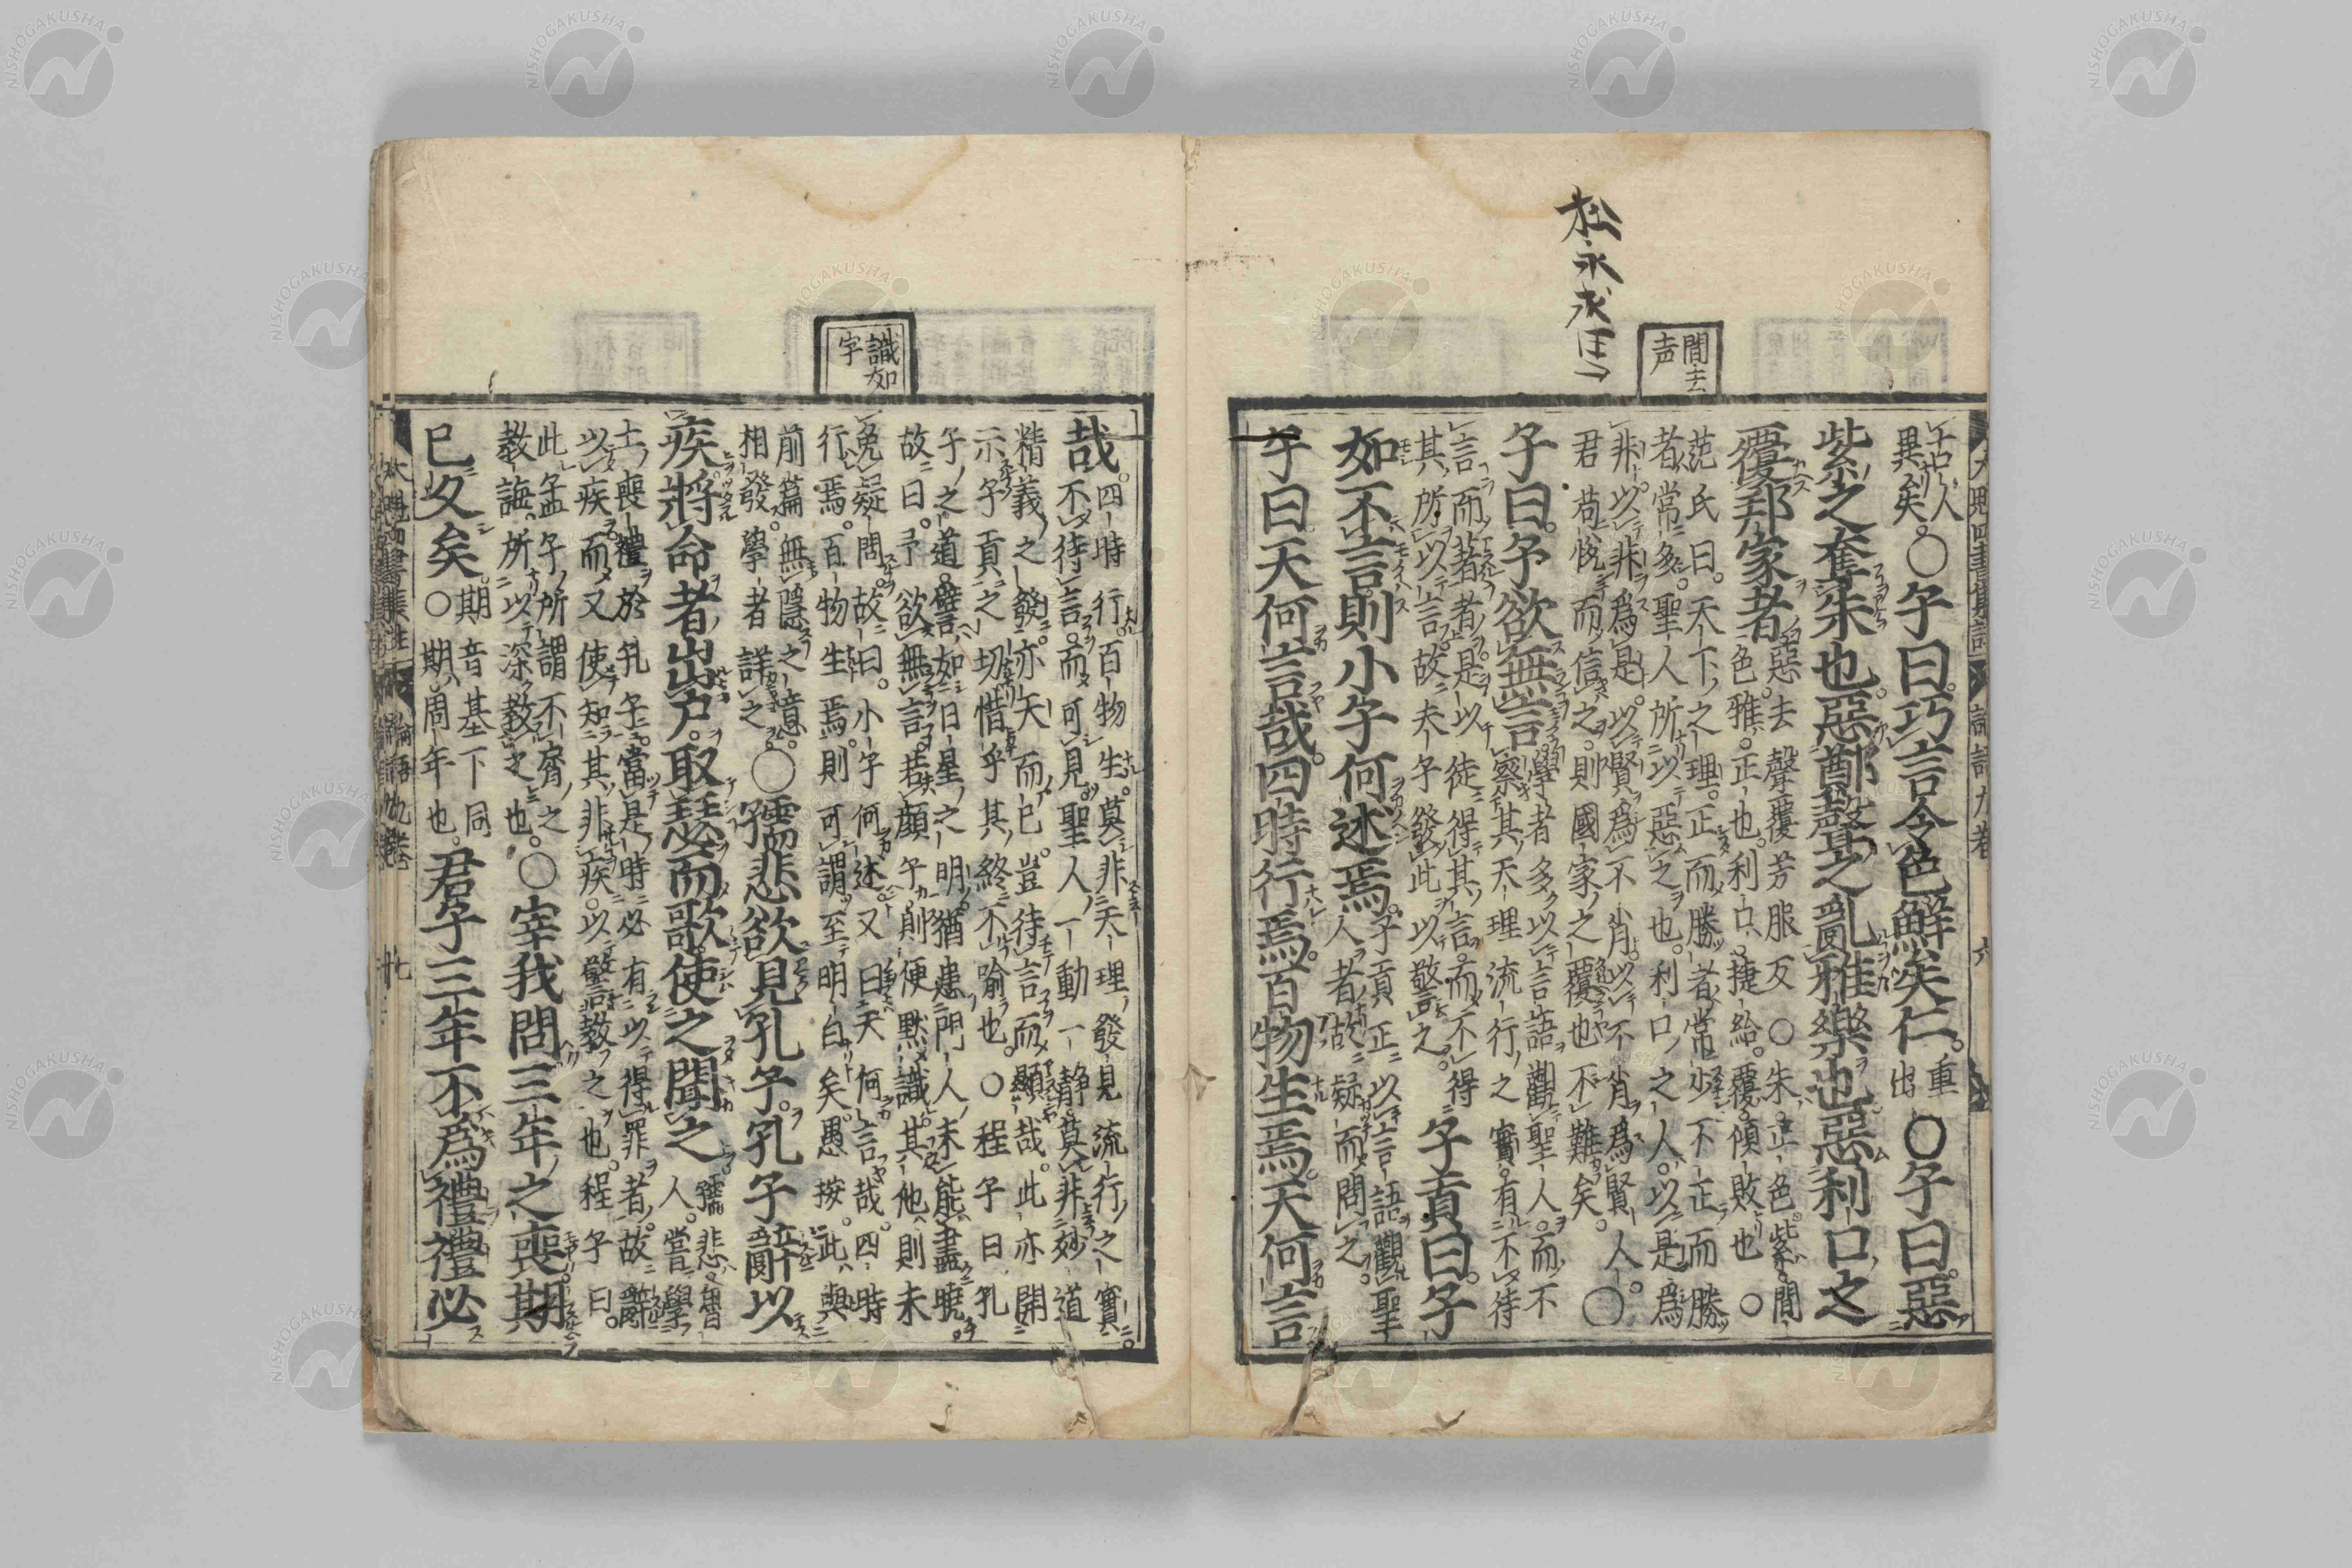 間去
声
古人
異矣。〇子曰。巧言令色鮮矣仁。重
出〇子曰。惡
紫之奪朱也。惡鄭聲之亂雅樂也惡利口之
覆邦家者。惡去聲覆芳服反〇朱。正色。紫。間
色。雅。正也。利口。捷給。覆。傾敗也。〇
范氏曰。天下之理。正而勝者常少。不正而勝
者常多。聖人所以惡之也。利口之人。以是爲
非。以非爲是。以賢爲不肖。以不肖爲賢。人
君苟悅而信之。則國家之覆也不難矣。〇
子曰。予欲無言學者多以言語觀聖人。而不
察其天理流行之實。有不待
言而著者。是以徒得其言。而不得
其所以言。故夫子發此以警之。子貢曰。子
如不言則小子何述焉。子貢正以言語觀聖
人者。故疑而問之。
子曰。天何言哉。四時行焉。百物生焉。天何言
識如
字
哉。四時行。百物生。莫非天理發見流行之實。
不待言。而可見。聖人一動一靜。莫非妙道
精義之發。亦天而已。豈待言而顯哉。此亦開
示子貢之切。惜乎其終不喻也。〇程子曰孔
子之道。譬如日星之明。猶患門人未能盡曉
故曰。予欲無言。若顏子則便默識。其他則未
免疑問。故曰。小子何述。又曰天何言哉。四時
行焉。百物生焉。則可謂至明白矣。愚按。此與
前篇無隱之意。
相發。學者詳之。〇孺悲欲見孔子。孔子辭以
疾。將命者出戶。取瑟而歌。使之聞之孺悲。魯
人。嘗學
士喪禮於孔子。當是時必有以得罪者。故辭
以疾。而又使知其非疾。以警教之也。程子曰。
此孟子所謂不屑之
教誨。所以深教之也。〇宰我問三年之喪期
已久矣。期音基下同
〇期。周年也。君子三年不爲禮禮必